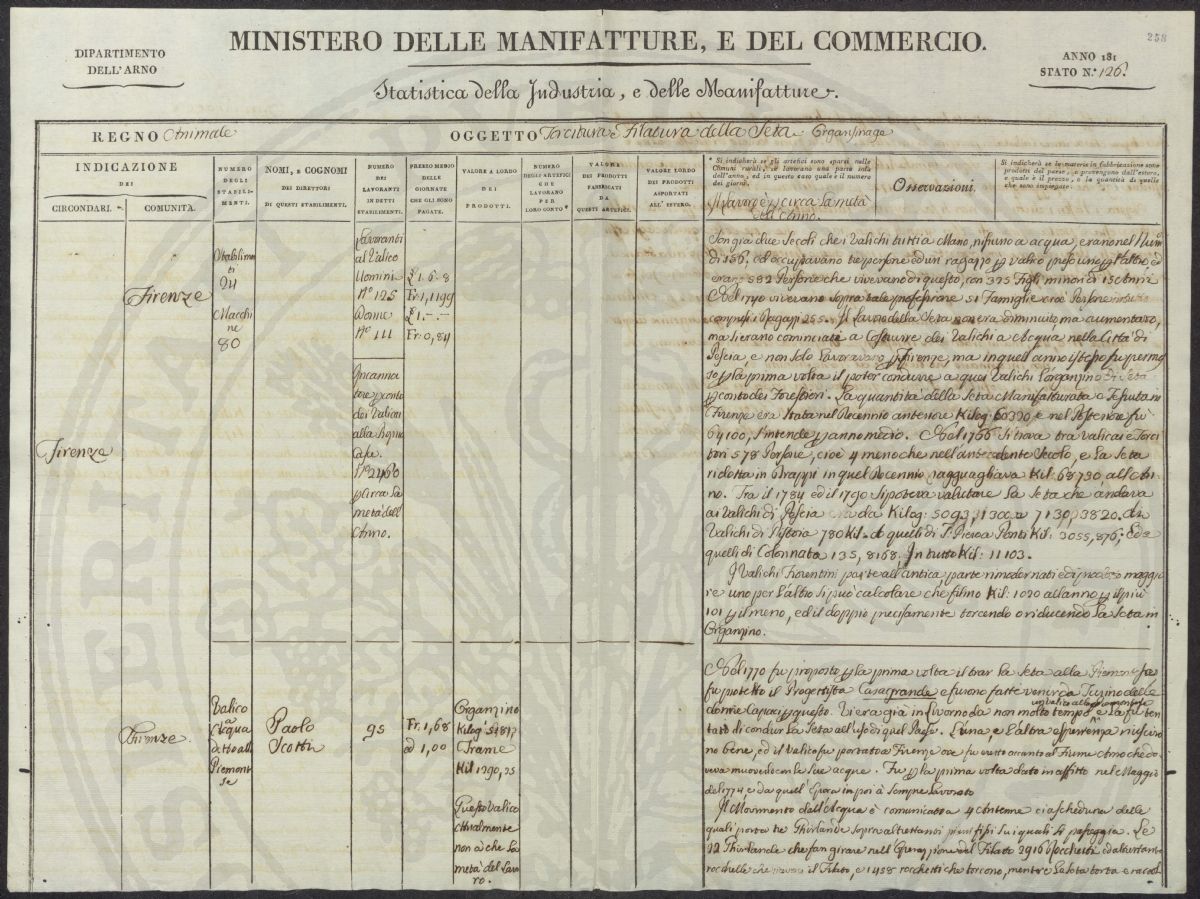 258
DIPARTIMENTO
DELL'ARNO
MINISTERO DELLE MANIFATTURE, E DEL COMMERCIO.
ANNO 181
STATO N.º 126.
Statistica della Industria, e delle Manifatture.
REGNO Animale
OGGETTO Torcitura e Filatura della Seta Organsinage
INDICAZIONE
DEI
CIRCONDARI. *
COMUNITÀ.
NUMERO
DEGLI
STABILI-
MENTI.
NOMI, E COGNOMI
DEI DIRETTORI
DI QUESTI STABILIMENTI.
NUMERO
DEI
LAVORANTI
IN DETTI
STABILIMENTI.
PREZZO MEDIO
DELLE
GIORNATE
CHE GLI SONO
PAGATE.
VALORE A LORDO
DEI
PRODOTTI.
NUMERO
DEGLI ARTEFICI
CHE
LAVORANO
PER
LORO CONTO*
VALORE
DEI PRODOTTI
FABBRICATI
DA
QUESTI ARTEFICI.
VALORE LORDO
DEI
PRODOTTI
ASPORTATI
ALL'ESTERO.
* Si indicherà se gli artefici sono sparsi nelle
Comuni rurali, se lavorano una parte sola
dell'anno, ed in questo caso quale è il numero
dei giorni.
Si lavora p circa la metà
dell'Anno.
Osservazioni.
Si indicherà se le materie in fabbricazione sono
prodotti del paese, o provengono dall'estero,
e quale è il prezzo, e la quantità di quelle
che sono impiegate.
Firenze
Firenze
Stabilimen
ti
24
Macchi
ne
80
Lavoranti
al Valico
Uomini
Nº 125
Donne
Nº 111
£ 1. 6. 8
Fr 1,1199
£ 1. - . -
Fr 0,84
Incanna
tore p conto
dei Valicai
alla Propria
Casa.
Nº 2460
p Circa la
metà dell'
Anno.
Son già due Secoli che i Valichi tutti a Mano, nissuno a acqua, erano nel Num.
di 156, ed occupavano tre persone ed un ragazzo p valico preso uno p l'altro, ed
eran 582 Persone che vivevano di questo, con 375 Figli minori di 15 Anni.
Nel 1740 vivevano sopra tale professione 51 Famiglie cioè Persone in tutto
compresi i Ragazzi 255. Il Lavoro della Seta non era diminuito, ma aumentato,
ma si erano cominciati a Costruire dei Valichi a Acqua nella Città di
Pescia, e non solo Lavoravano p Firenze, ma in quell'anno istesso fu permes
so p la prima volta il poter condurre a quei Valichi l'organzino di Seta
p conto dei Forestieri. La quantità della Seta Manifatturata e Tessuta in
Firenze era stata nel Decennio anteriore Kilog: 60390 e nel Posteriore fù
64100, s'intende p anno medio. Nel 1766 si trova tra valicai e Torci
tori 578 Persone, cioè 4 meno che nell'antecedente Secolo, e la Seta
ridotta in Drappi in quel Decennio ragguagliava Kil: 68730 all'An
no. Tra il 1784 ed il 1790 si poteva valutare la Seta che andava
ai Valichi di Pescia da Kilog: 5093,1300 a 7130,3820. Ai
Valichi di Pistoia 780 Kil. A quelli di S. Piero a Ponti Kil: 3055,876; Ed a
quelli di Colonnata 135,8168. In tutto Kil: 11103.
I Valichi Fiorentini parte all'antica, parte rimodernati
e uno per l'altro si può calcolare che filino Kil: 1020 all'anno p il più
101 p il meno, ed il doppio precisamente torcendo o riducendo la Seta in
Organzino.
Firenze
Valico
a
Acqua
detto alla
Piemont
ese
Paolo
Scotti
95
Fr. 1,68
ed 1,00
Organzino
Kilog.
Trame
Kil 1290,35
Questo Valico
Attualmente
non à che la
metà del Lavo
ro.
Nel 1770 fu proposto p la prima volta il tirar la Seta alla Piemontese
fu protetto il Progettista Casagrande e furono fatte venire da Torino delle
donne Capaci p questo. Vi era già in Livorno da non molto tempo un Valico alla Piemontese e la fu ten
tato di condur la Seta all'uso di quel Paese. L'una, e l'altra esperienza riusciro
no bene, ed il Valico fu portato a Firenze ove fu eretto accanto al Fiume Arno che do
veva muoverlo con le sue acque. Fu p la prima volta dato in affitto nel Maggio
del 1774 e da quell'Epoca in poi à Sempre lavorato
Il Movimento dall'Acqua è comunicato a 4 Antenne ciascheduna delle
quali porta tre Ghirlande sopra altrettanti piani fissi su i quali si passeggia. Le
12 Ghirlande che fan girare nell'Operazione del Filato 2916 Rocchetti ed altrettante
rocchelle che il Filato, e 1458 rocchetti che torcono, mentre la Seta torta e raccol